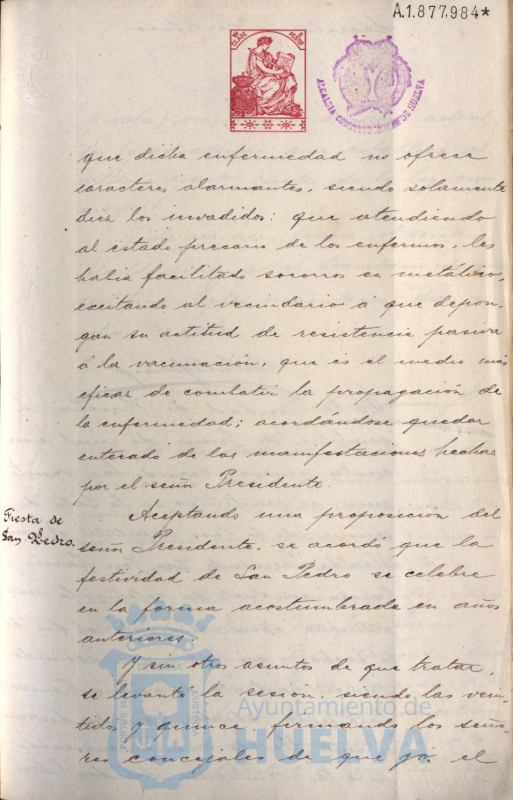 A.1.877.984*
CLASE
PESETAS
ALCALDIA CONSTITUCIONAL DE HUELVA
que dicha enfermedad no ofrece
caracteres alarmantes, siendo solamente
diez los invadidos: que atendiendo
al estado precario de los enfermos, les
habia facilitado socorros en metálico,
excitando al vecindario á que depon-
gan su actitud de resistencia pasiva
á la vacunación, que és el medio mas
eficaz de combatir la propagación de
la enfermedad; acordándose quedar
enterado de las manifestaciones hechas
por el señor Presidente.
Fiesta de
San Pedro.
Aceptando una proposición del
señor Presidente, se acordó que la
festividad de San Pedro se celebre
en la forma acostumbrada en años
anteriores.
Y sin otros asuntos de que tratar,
se levantó la sesión, siendo las vein-
tidos y quince, firmando los seño-
res concejales de que yó, el
Ayuntamiento de
HUELVA